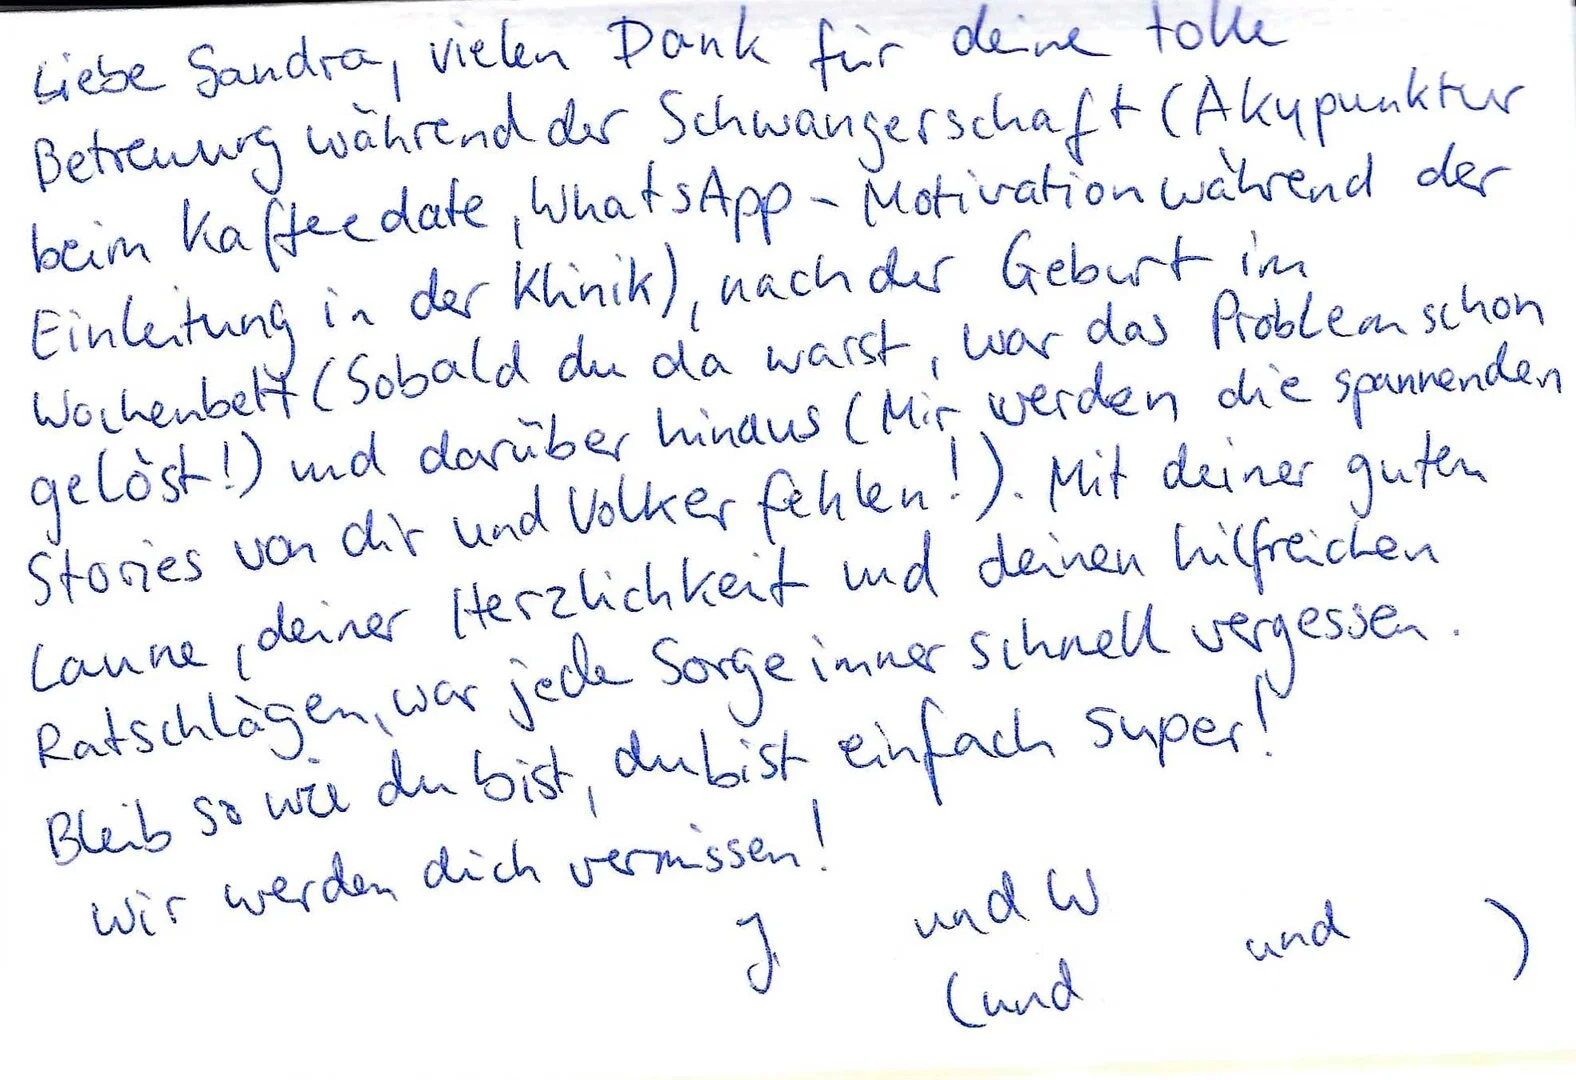 Liebe Sandra, vielen Dank für deine tolle
Betreuung während der Schwangerschaft (Akupunktur
beim Kaffeedate, WhatsApp-Motivation während der
Einleitung in der Klinik), nach der Geburt im
Wochenbett (Sobald du da warst, war das Problem schon
gelöst!) und darüber hinaus (Mir werden die spannenden
Stories von dir und Volker fehlen!). Mit deiner guten
Laune, deiner Herzlichkeit und deinen hilfreichen
Ratschlägen, war jede Sorge immer schnell vergessen.
Bleib so wie du bist, du bist einfach super!
Wir werden dich vermissen!
J und W
(und und )